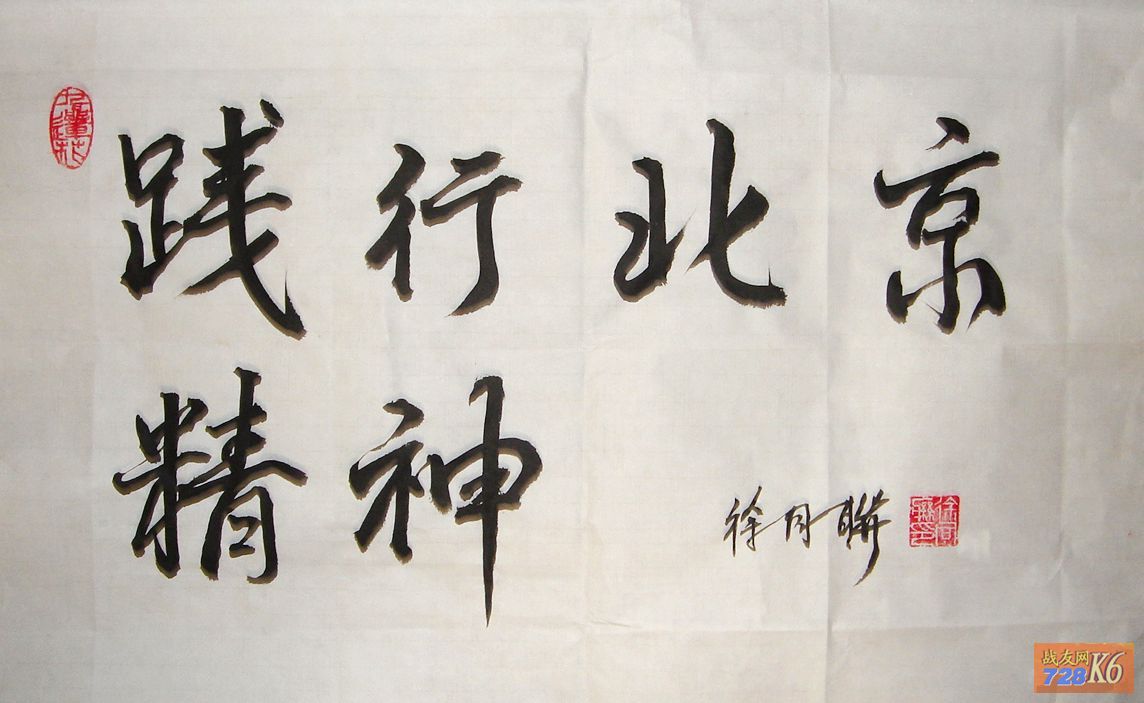 践行北京
精神
徐月联
战友网
728K6